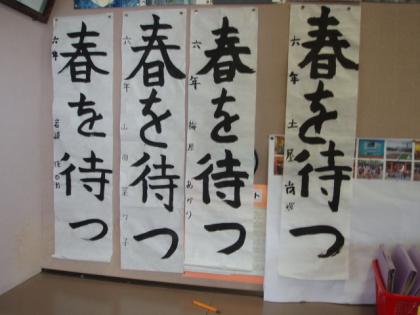 春を待つ
六年
春を待つ
六年 山田菜々子
春を待つ
六年 梅原 あかり
春を待つ
六年 土屋